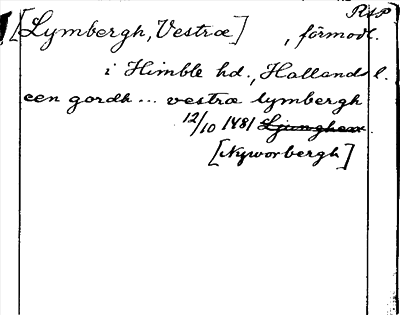 RAP
[Lymbergh, Vestræ] , förmodl.
i Himble hd., Hallands l.
een gordh ... vestræ lymbergh
12/10 1481 Ljunghem.
[Nyworbergh]